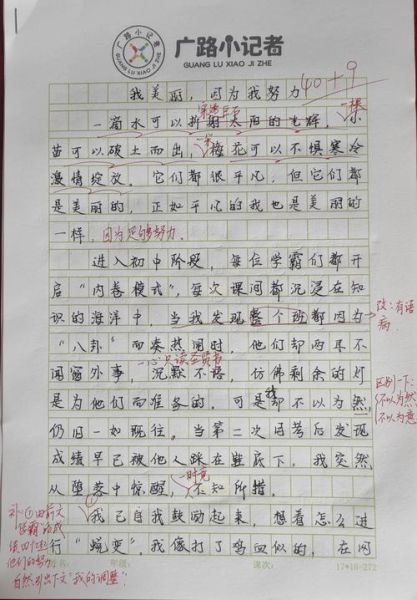 广路小记者
广路小记者
GUANG LU XIAO JI ZHE
我美丽，因为我努力
40+9
一滴水可以折射太阳的光辉，小
一棵
苗可以破土而出，梅花可以不惧寒冷
激情绽放。它们都很平凡，但它们都
是美丽的，正如平凡的我也是美丽的
一样，因为足够努力。
进入初中阶段，每位学霸们都开
启“内卷模式”，每次课间都沉浸在知
识的海洋中，当我发现整个班都因为
改：有语病
“八卦”而凑热闹时，他们却两耳不
一心只读圣贤书
闻窗外事，沉默不语，仿佛剩余的灯
是为他们而准备的，可是却不以为然
区别一下：
不以为然
不以为意
仍旧一如既往。当第二次月考后发现
成绩早已被他人踩在鞋底下，我突然
从堕落中惊醒，不知所措。
时竟
我已自我鼓励起来，想着怎么进
行“蜕变”，我像打了鸡血似的，在网
补：①由前文
学霸
他们的努力
自然引出下文“我的调整”
姓名：
年级：
课次：
17*16=272